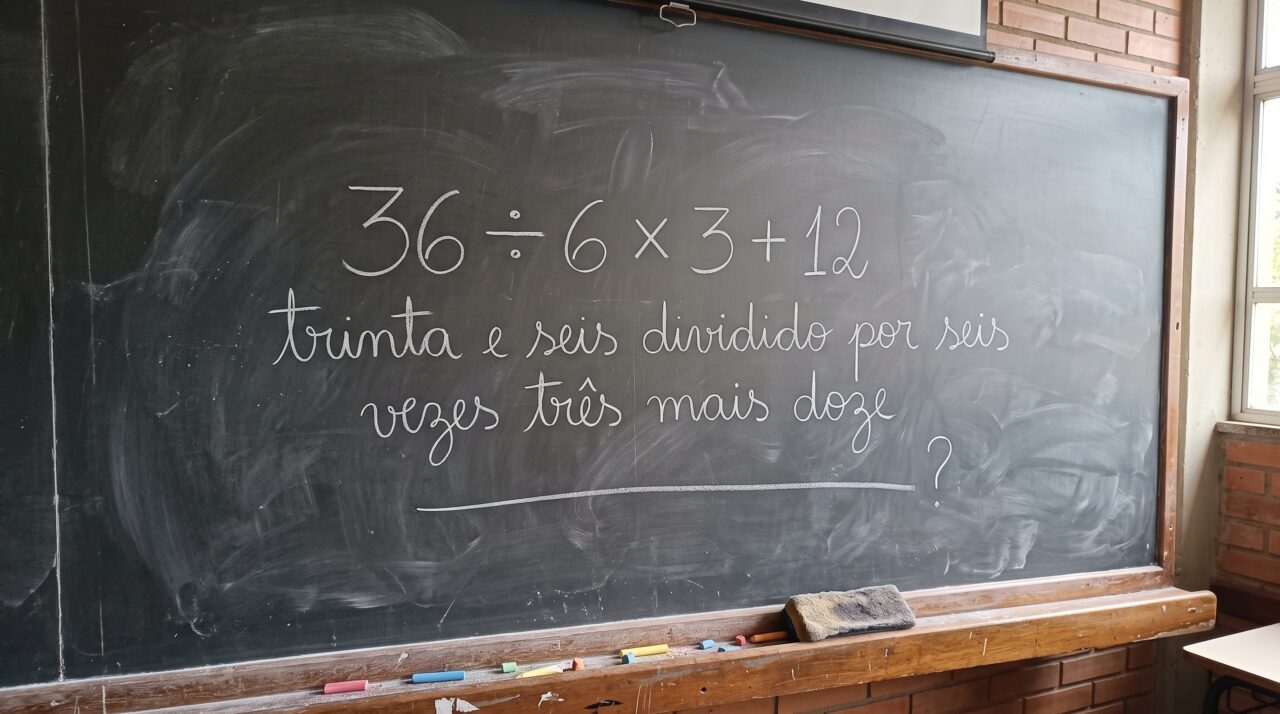 36 ÷ 6 × 3 + 12
trinta e seis dividido por seis
vezes três mais doze
?